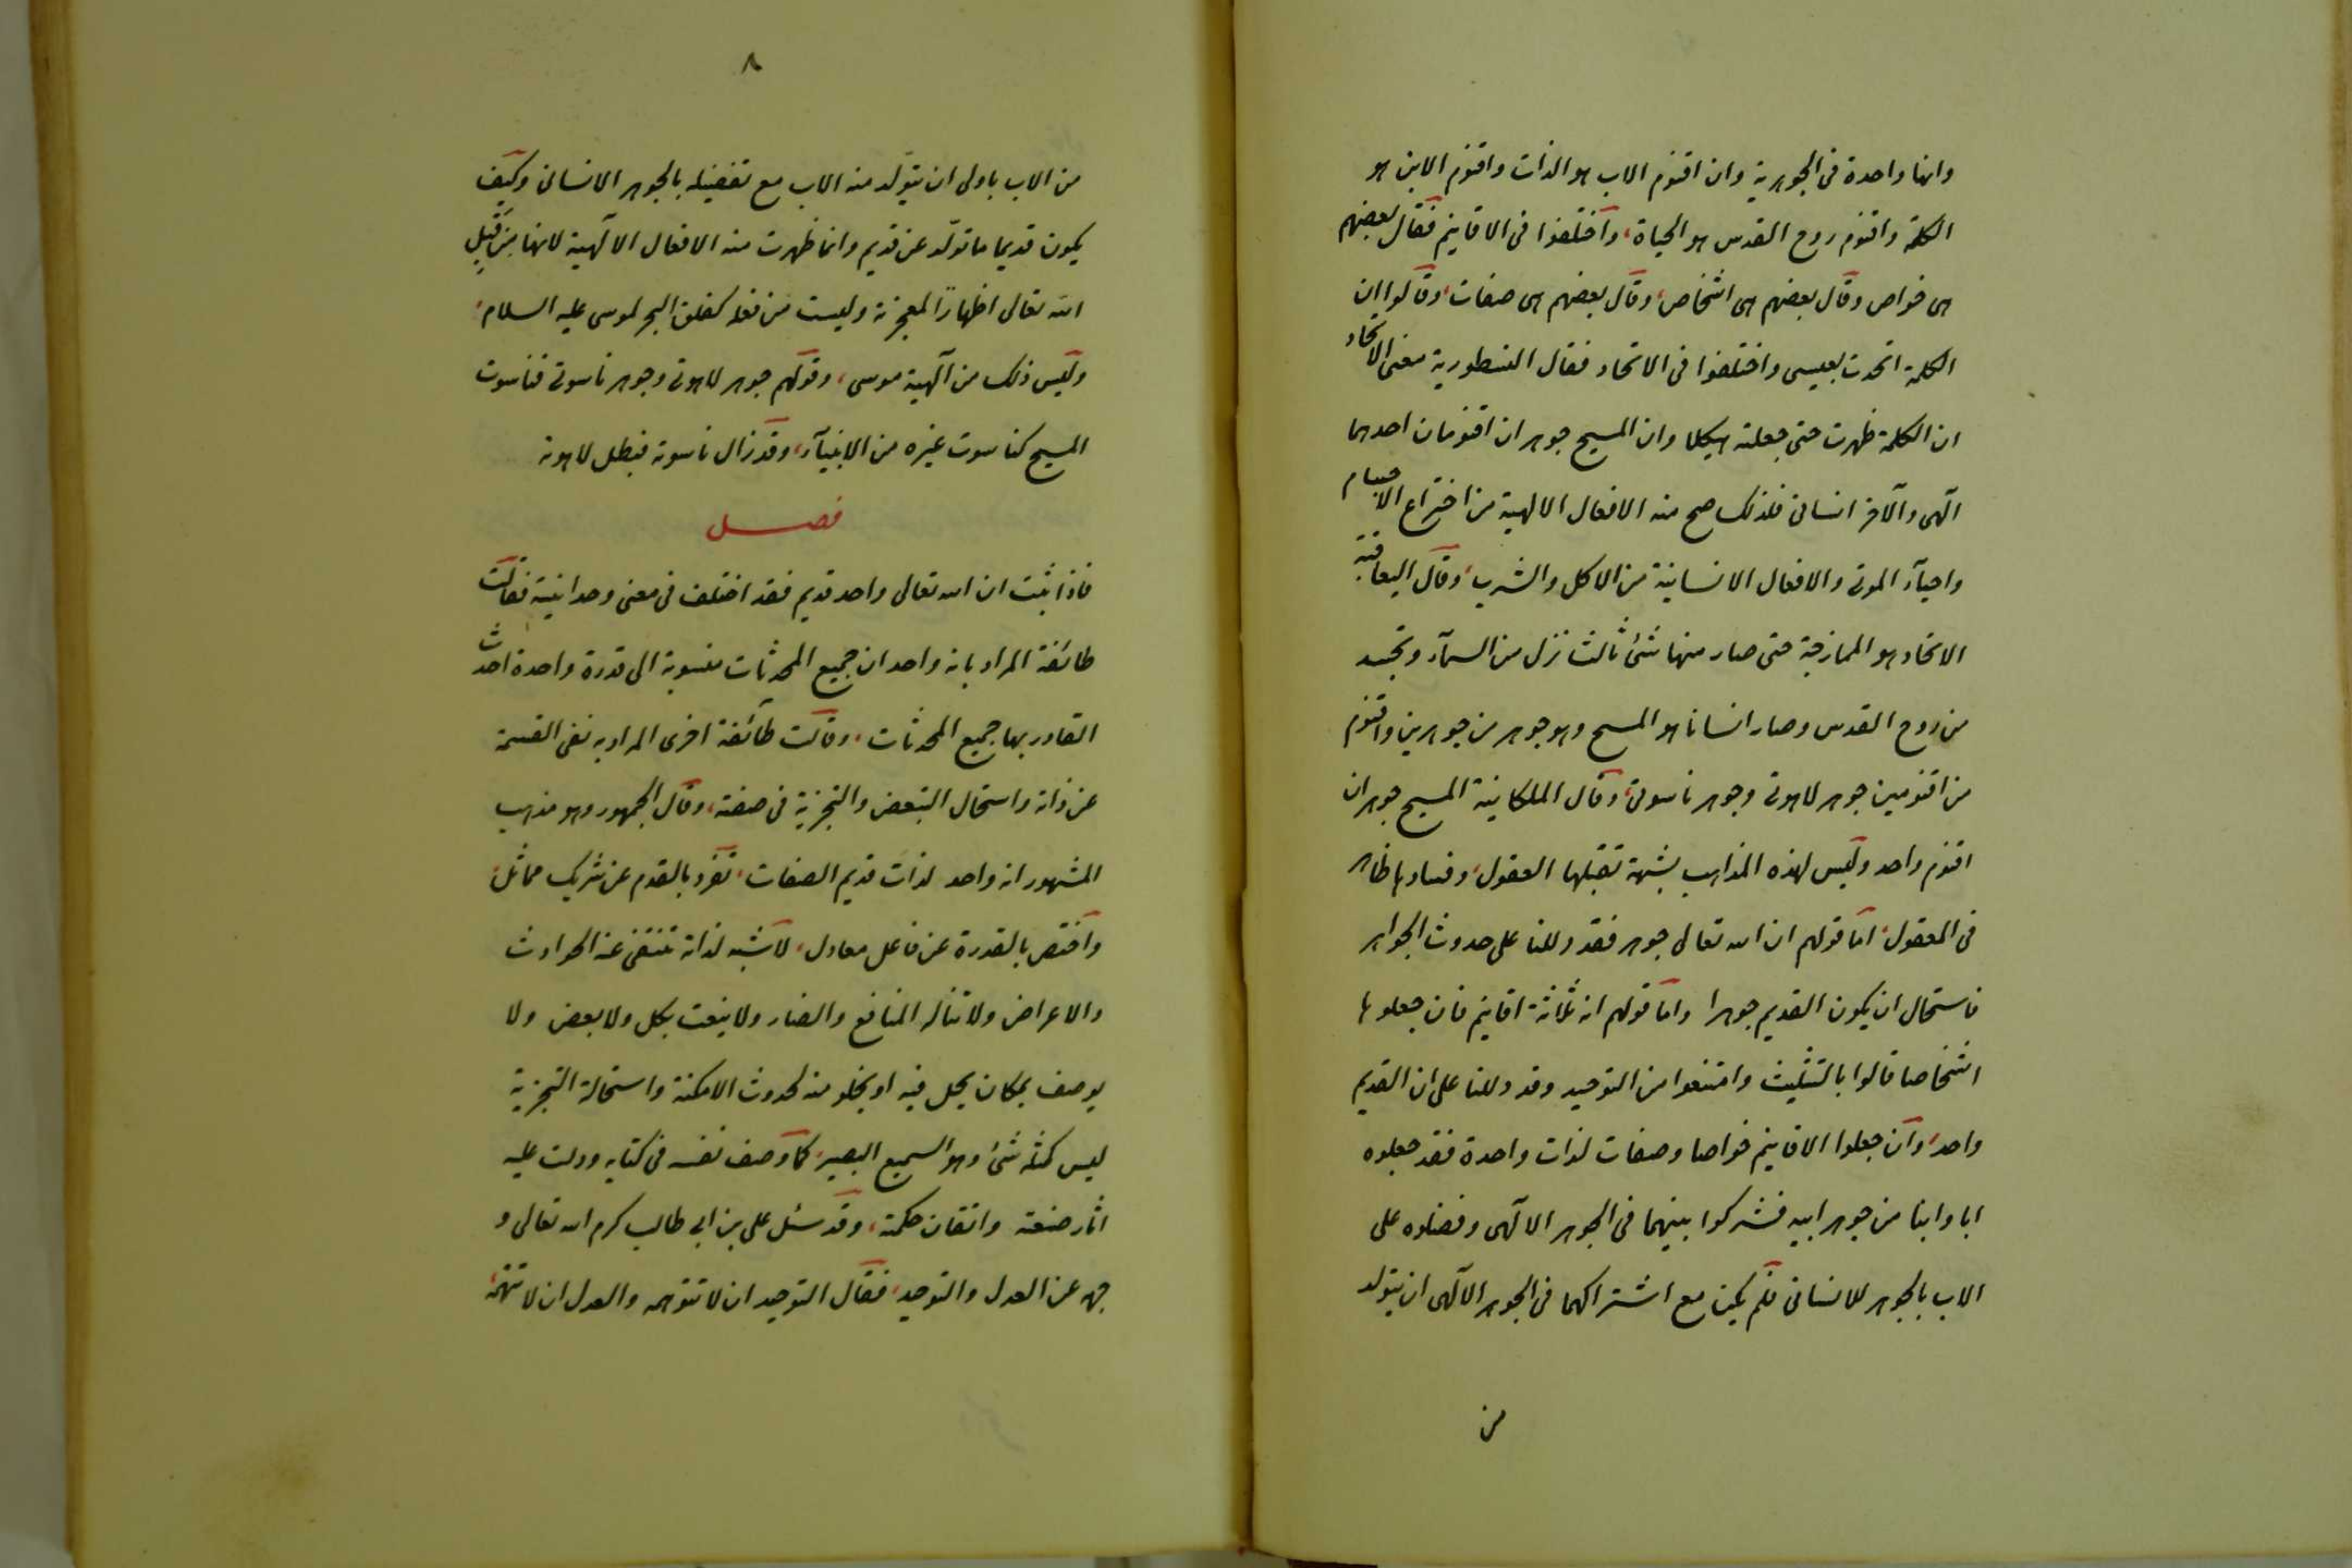 وانها واحدة فى الجوهرية وان اقنوم الاب هو الذات واقنوم الابن هو
الكلمة واقنوم روح القدس هو الحياة، واختلفوا فى الاقانيم فقال بعضهم
هى خواص وقال بعضهم هى اشخاص، وقال بعضهم هى صفات، وقالوا ان
الكلمة اتحدت بعيسى واختلفوا فى الاتحاد فقال النسطورية معنى الاتحاد
ان الكلمة ظهرت حتى جعلته هيكلا وان المسيح جوهران اقنومان احدهما
آلهى والآخر انسانى فلذلك صح منه الافعال الالهية من اختراع الاجسام
واحيآء الموتى والافعال الانسانية من الاكل والشرب، وقال اليعاقبة
الاتحاد هو الممازجة حتى صار منها شئ ثالث نزل من السمآء وتجسد
من روح القدس وصار انسانا هو المسيح وهو جوهر من جوهرين واقنوم
من اقنومين جوهر لاهوتى وجوهر ناسوتى، وقال الملكانية المسيح جوهران
اقنوم واحد وليس لهذه المذاهب شبهة تقبلها العقول، وفسادها ظاهر
فى المعقول، اما قولهم ان الله تعالى جوهر فقد دللنا على حدوث الجواهر
فاستحال ان يكون القديم جوهرا واما قولهم انه ثلاثة اقانيم فان جعلوها
اشخاصا قالوا بالتثليث وامتنعوا من التوحيد وقد دللنا على ان القديم
واحد، وان جعلوا الاقانيم خواصا وصفات لذات واحدة فقد جعلوه
ابا وابنا من جوهر ابيه فشركوا بينهما فى الجوهر الالهى وفضلوه على
الاب بالجوهر للانسانى فلم يكن مع اشتراكهما فى الجوهر الالهى ان يتولد
من
٨
من الاب باولى ان يتولد منه الاب مع تفضيله بالجوهر الانسانى وكيف
يكون قديما ما تولد عن قديم وانما ظهرت منه الافعال الآلهية لانها من قبل
الله تعالى اظهارا لمعجزته وليست من فعله كفلق البحر لموسى عليه السلام،
وليس ذلك من آلهية موسى، وقولهم جوهر لاهوتى وجوهر ناسوتى فناسوت
المسيح كناسوت غيره من الانبيآء، وقد زال ناسوته فبطل لاهوته
فصل
فاذا ثبت ان الله تعالى واحد قديم فقد اختلف فى معنى وحدانيته فقالت
طائفة المراد بانه واحد ان جميع المحدثات منسوبة الى قدرة واحدة احدث
القادر بها جميع المحدثات، وقالت طآئفة اخرى المراد به نفى القسمة
عن ذاته واستحال التبعض والتجزية فى صفته، وقال الجمهور وهو مذهب
المشهور انه واحد لذات قديم الصفات، تفرد بالقدم عن شريك مماثل،
واختص بالقدرة عن فاعل معادل، لا شبه لذاته تنتفى عنه الحوادث
والاعراض ولا تناله المنافع والضار ولا ينعت بكل ولا بعض ولا
يوصف بمكان يحل فيه او يخلو منه لحدوث الامكنة واستحالة التجزية
ليس كمثله شئ وهو السميع البصير، كما وصف نفسه فى كتابه ودلت عليه
اثار صنعته واتقان حكمته، وقد سئل على بن ابى طالب كرم الله تعالى و
جهه عن العدل والتوحيد، فقال التوحيد ان لا تتوهمه والعدل ان لا تتهمه،